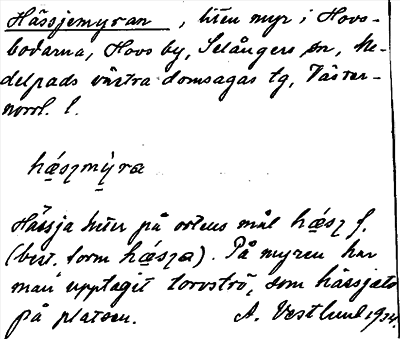 Hässjemyran, liten myr i Hovs-
bodarna, Hovs by, Selångers sn, Me-
delpads västra domsagas tg, Väster-
norrl. l.
hásʒmỳra
Hässja heter på ortens mål hásʒ f.
(best. form hásʒa). På myren har
man upptagit torvströ, som hässjats
på platsen. A. Vestlund 1934.